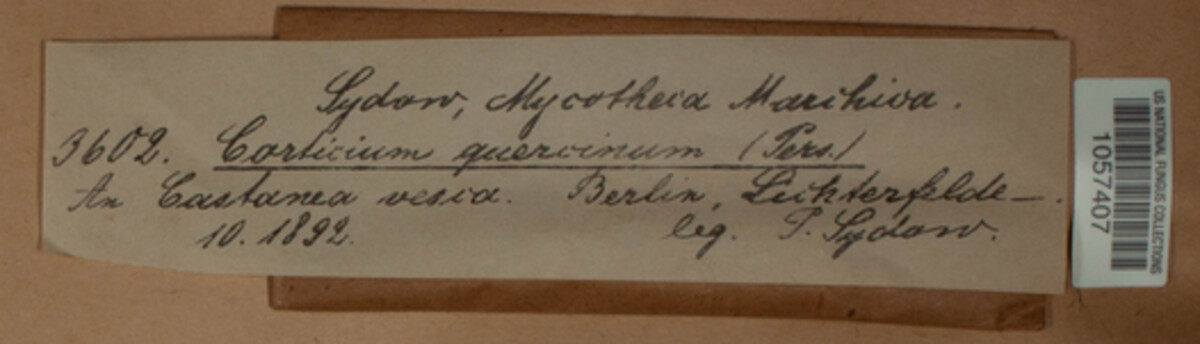 Sydow, Mycotheca Marchica.
3602. Corticium quercinum (Pers.)
An Castanea vesca. Berlin, Lichterfelde —.
10. 1892. leg. P. Sydow.
US NATIONAL FUNGUS COLLECTIONS
1057407